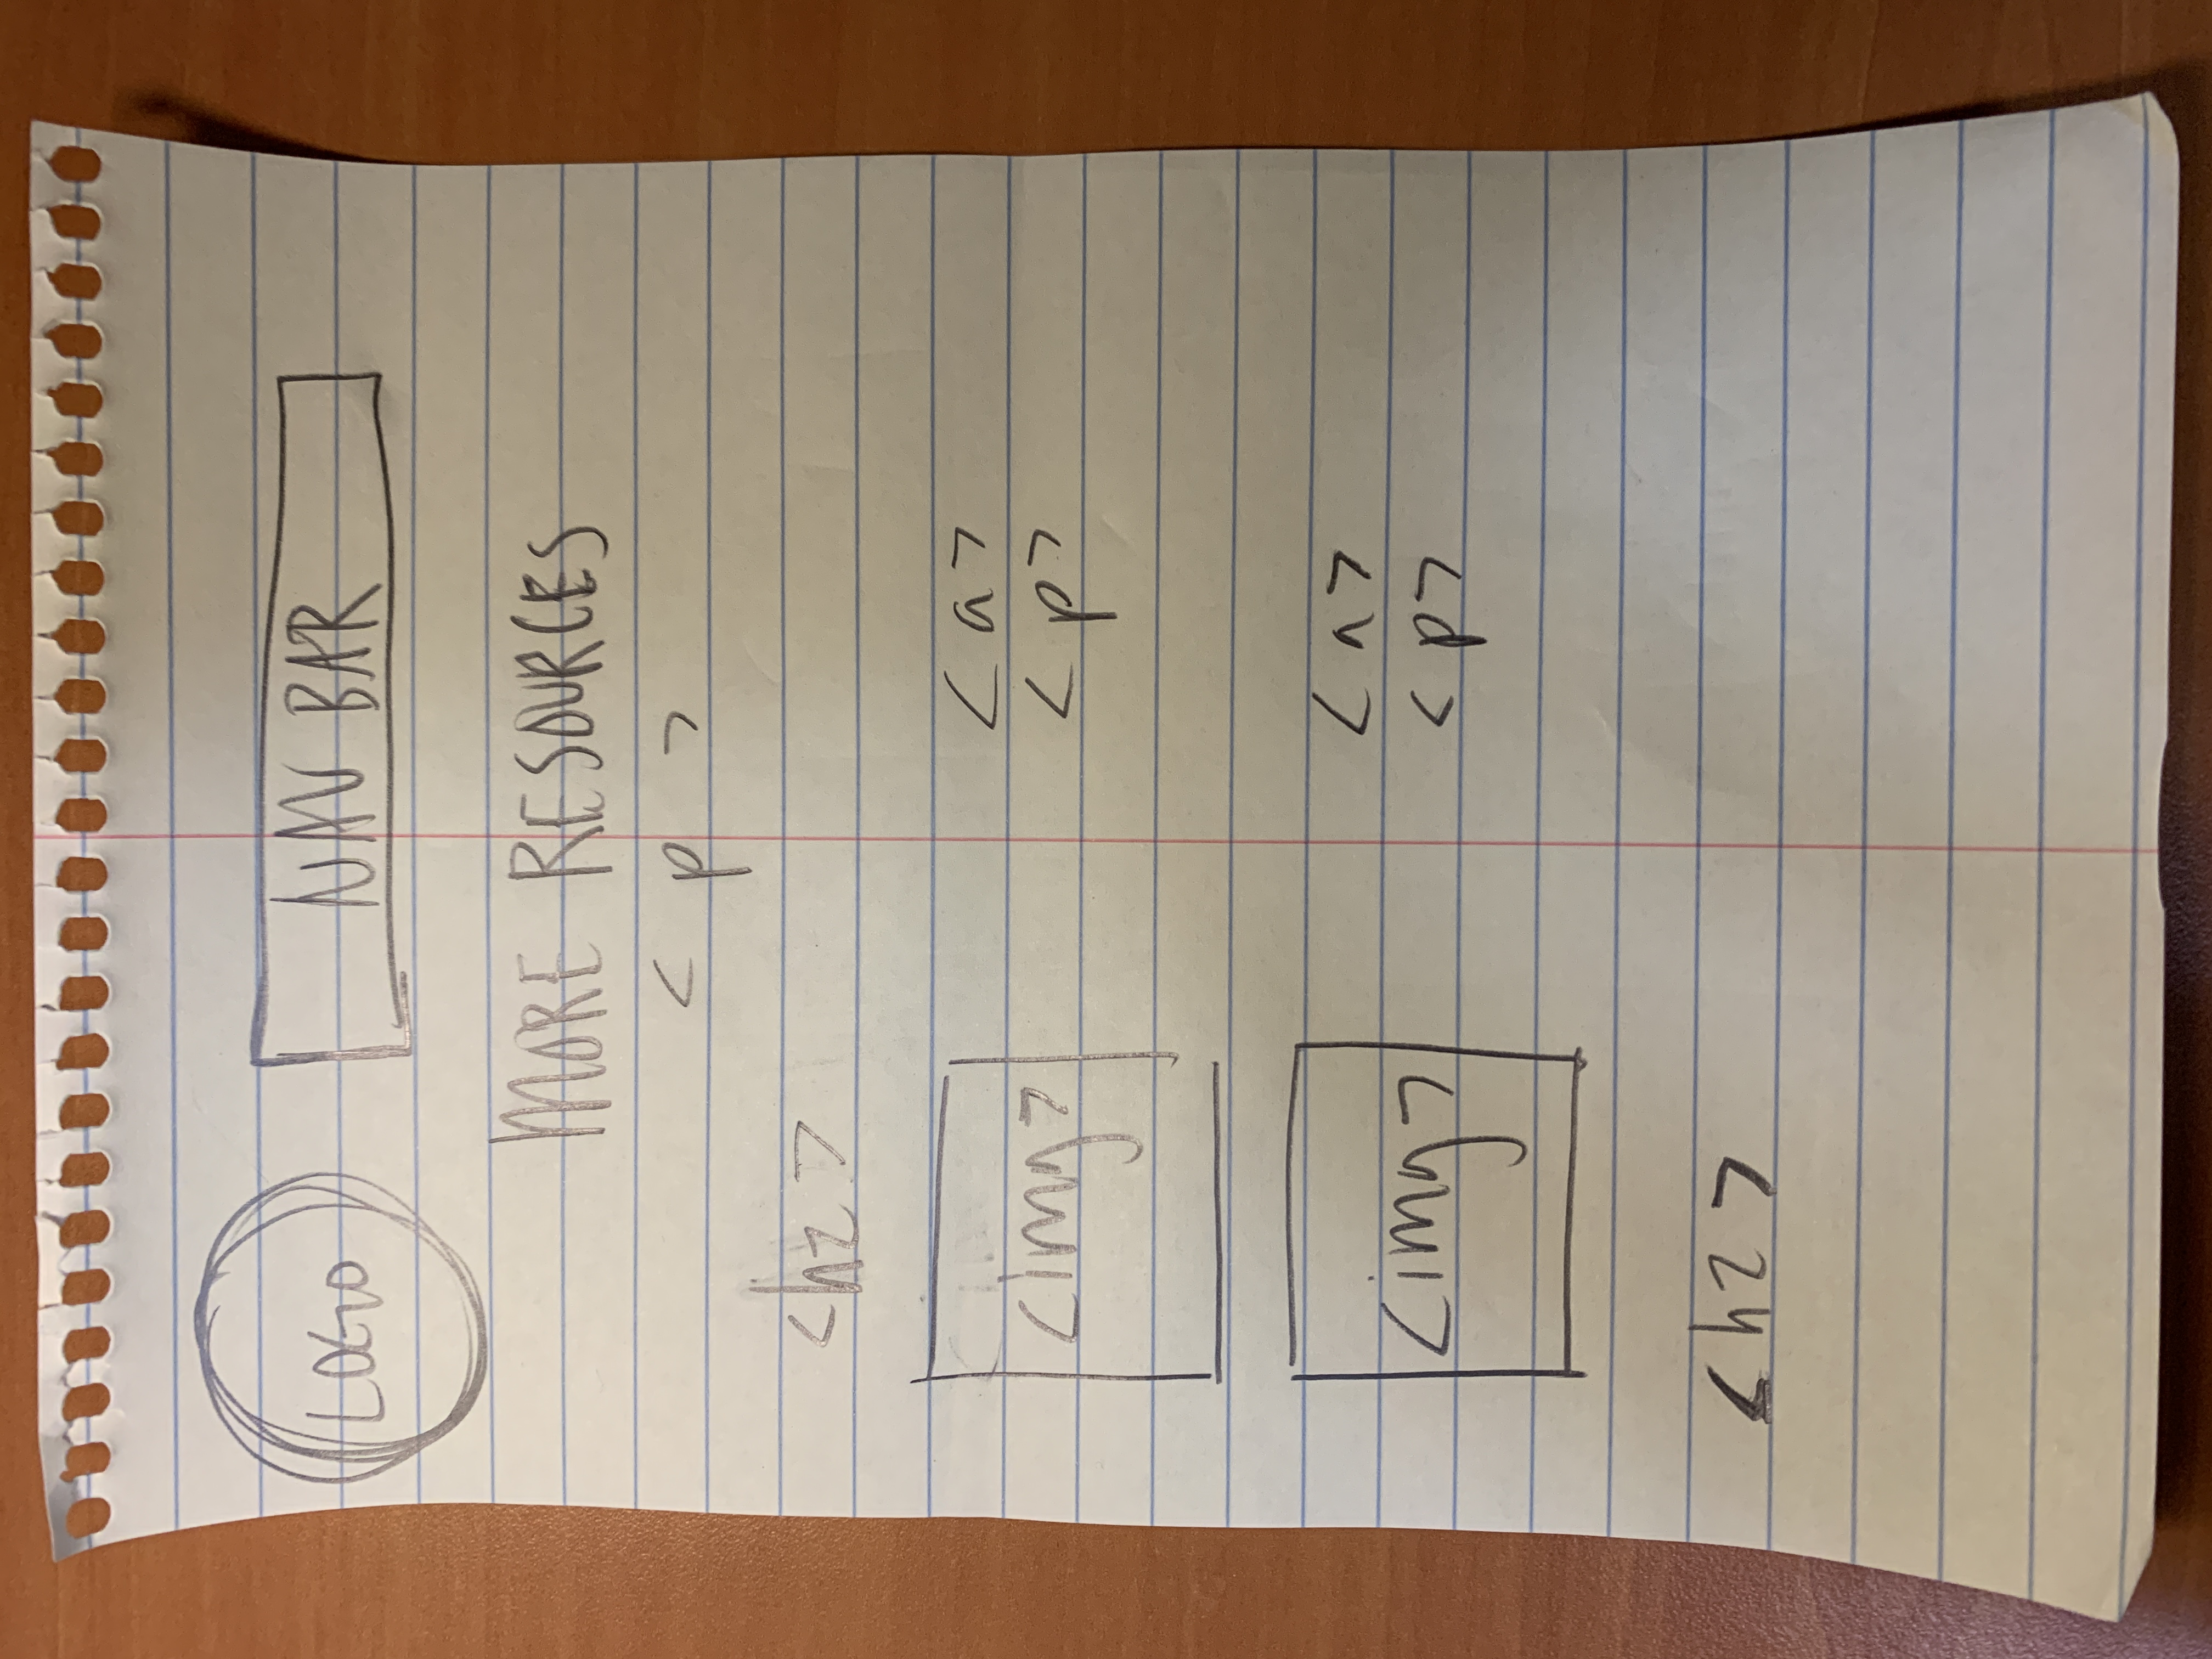 LOGO
NAV BAR
MORE RESOURCES
< p >
<h2>
<img>
<a>
<p>
<img>
<a>
<p>
<h2>